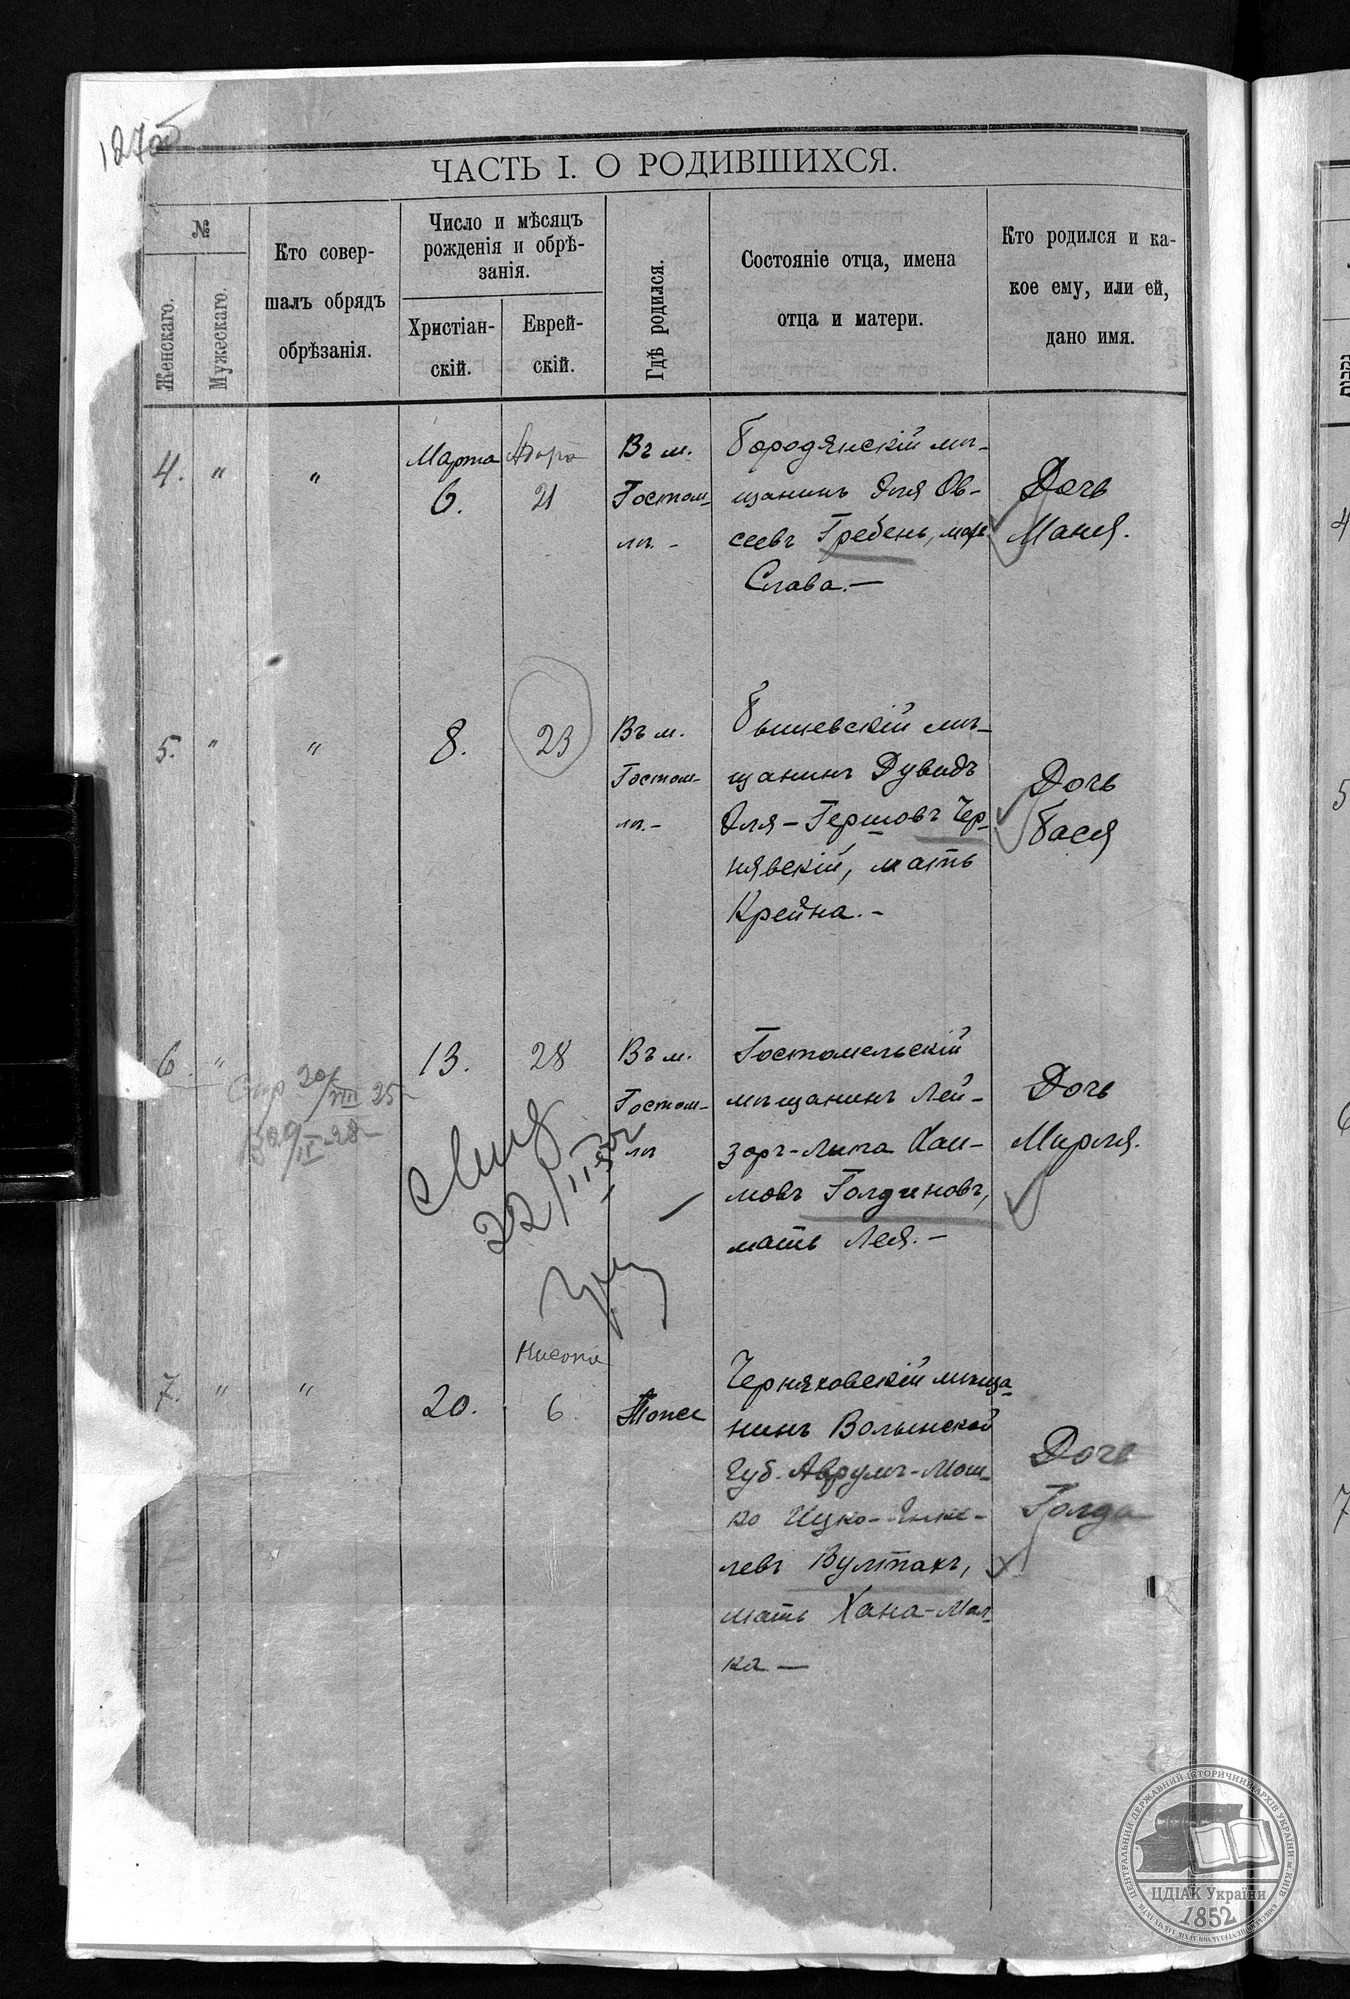 ЧАСТЬ I. О РОДИВШИХСЯ.
№
Женскаго.
Мужескаго.
Кто совер-
шалъ обрядъ
обрѣзанія.
Число и мѣсяцъ
рожденія и обрѣ-
занія.
Христіан-
скій.
Еврей-
скій.
Гдѣ родился.
Состояніе отца, имена
отца и матери.
Кто родился и ка-
кое ему, или ей,
дано имя.
4. " "
Марта
6.
Адара
21
Въ м.
Гостом-
лѣ. -
Бородянскій мѣ-
щанинъ Эля Ов-
сеевъ Гребень, мать
Слава. —
Дочь
Маня.
5. " "
8.
23
Въ м.
Гостом-
лѣ. -
Бышевскій мѣ-
щанинъ Дувидъ
Эля-Гершовъ Чер-
нявскій, мать
Крейна. -
Дочь
Бася
6. "
13.
28
Въ м.
Гостом-
лѣ
Гостомельскій
мѣщанинъ Лей-
зоръ-Липа Хаи-
мовъ Голдиновъ,
мать Лея. -
Дочь
Мирля.
20/VIII 25
22/II
7. " "
20.
Нисона
6.
Тоже
Черняховскій мѣща-
нинъ Волынской
губ. Аврумъ-Мош-
ко Ицко-Янке-
левъ Вултахъ,
мать Хана-Мал-
ка —
Дочь
Голда
4
5
6
7
ЦЕНТРАЛЬНИЙ ДЕРЖАВНИЙ ІСТОРИЧНИЙ АРХІВ УКРАЇНИ м. КИЇВ
ЦДІАК України
1852